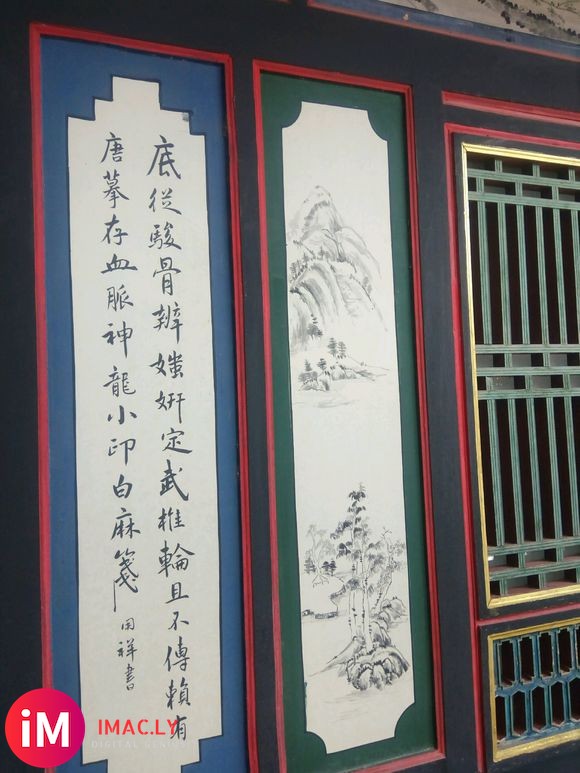 底從駿骨辨媸妍定武椎輪且不傳賴有
唐摹存血脈神龍小印白麻箋
用祥書
iM
IMAC.LY